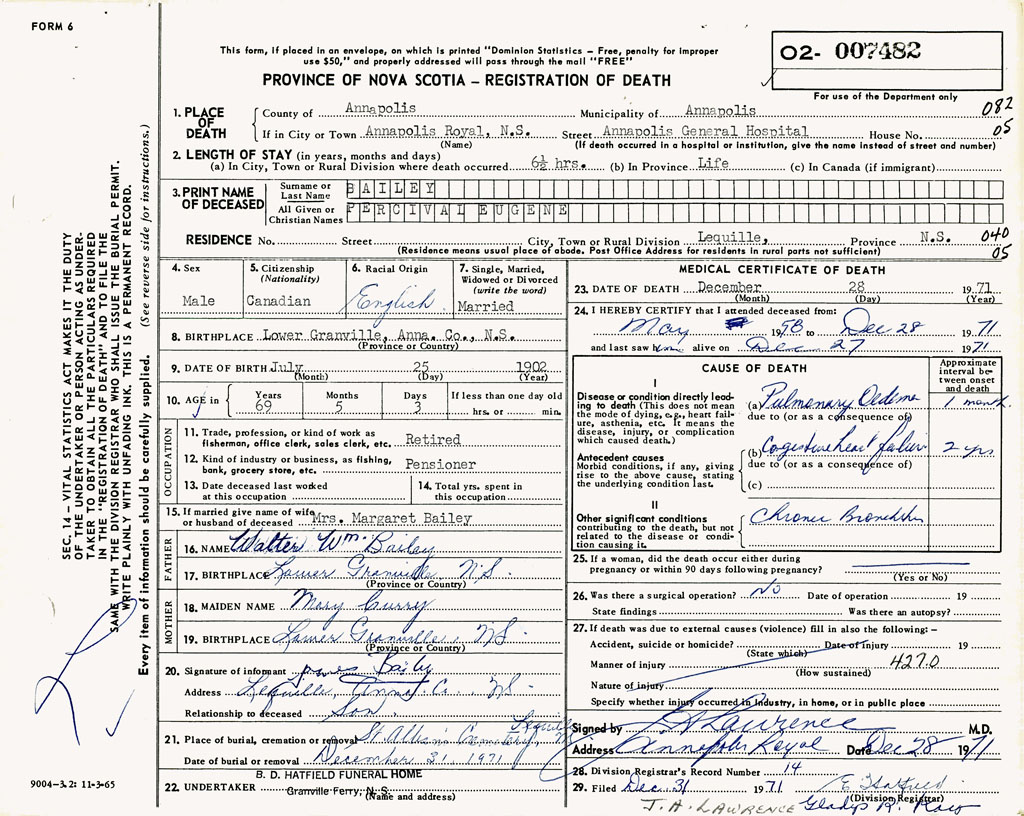 FORM 6
This form, if placed in an envelope, on which is printed "Dominion Statistics – Free, penalty for improper
use $50," and properly addressed will pass through the mail "FREE"
PROVINCE OF NOVA SCOTIA – REGISTRATION OF DEATH
O2- 007482
For use of the Department only
082
05
1. PLACE OF DEATH
County of Annapolis Municipality of Annapolis
If in City or Town Annapolis Royal, N.S. Street Annapolis General Hospital House No.
(Name) (If death occurred in a hospital or institution, give the name instead of street and number)
2. LENGTH OF STAY (in years, months and days)
(a) In City, Town or Rural Division where death occurred 6½ hrs. (b) In Province Life (c) In Canada (if immigrant)
3. PRINT NAME OF DECEASED
Surname or Last Name BAILEY
All Given or Christian Names PERCIVAL EUGENE
RESIDENCE No. Street City, Town or Rural Division Lequille, Province N.S. 040
(Residence means usual place of abode. Post Office Address for residents in rural parts not sufficient) 05
SEC. 14 – VITAL STATISTICS ACT MAKES IT THE DUTY
OF THE UNDERTAKER OR PERSON ACTING AS UNDER-
TAKER TO OBTAIN ALL THE PARTICULARS REQUIRED
IN THE "REGISTRATION OF DEATH" AND TO FILE THE
SAME WITH THE DIVISION REGISTRAR WHO SHALL ISSUE THE BURIAL PERMIT.
WRITE PLAINLY WITH UNFADING INK. THIS IS A PERMANENT RECORD.
Every item of information should be carefully supplied. (See reverse side for instructions.)
4. Sex
Male
5. Citizenship
(Nationality)
Canadian
6. Racial Origin
English
7. Single, Married,
Widowed or Divorced
(write the word)
Married
8. BIRTHPLACE Lower Granville, Anna. Co., N.S.
(Province or Country)
9. DATE OF BIRTH July 25 1902
(Month) (Day) (Year)
10. AGE in Years Months Days If less than one day old
69 5 3 hrs. or min.
OCCUPATION
11. Trade, profession, or kind of work as
fisherman, office clerk, sales clerk, etc. Retired
12. Kind of industry or business, as fishing,
bank, grocery store, etc. Pensioner
13. Date deceased last worked
at this occupation
14. Total yrs. spent in
this occupation
15. If married give name of wife
or husband of deceased Mrs. Margaret Bailey
FATHER
16. NAME Walter Wm. Bailey
17. BIRTHPLACE Lower Granville N.S.
(Province or Country)
MOTHER
18. MAIDEN NAME Mary Curry
19. BIRTHPLACE Lower Granville, NS
(Province or Country)
20. Signature of informant Bailey
Address Lequille, Anna. Co. NS
Relationship to deceased Son
21. Place of burial, cremation or removal St Alban's Cemetery, Lequille
Date of burial or removal December 31 1971
B. D. HATFIELD FUNERAL HOME
22. UNDERTAKER Granville Ferry, N. S.
(Name and address)
9004-3.2: 11-3-65
MEDICAL CERTIFICATE OF DEATH
23. DATE OF DEATH December 28 1971
(Month) (Day) (Year)
24. I HEREBY CERTIFY that I attended deceased from:
May 1958 to Dec 28 1971
and last saw him alive on Dec 27 1971
CAUSE OF DEATH
Approximate
interval be-
tween onset
and death
I
Disease or condition directly lead-
ing to death (This does not mean
the mode of dying, e.g., heart fail-
ure, asthenia, etc. It means the
disease, injury, or complication
which caused death.)
(a) Pulmonary Oedema 1 month
due to (or as a consequence of)
Antecedent causes
Morbid conditions, if any, giving
rise to the above cause, stating
the underlying condition last.
(b) Congestive heart failure 2 yrs
due to (or as a consequence of)
(c)
II
Other significant conditions
contributing to the death, but not
related to the disease or condi-
tion causing it.
Chronic Bronchitis
25. If a woman, did the death occur either during
pregnancy or within 90 days following pregnancy?
(Yes or No)
26. Was there a surgical operation? No Date of operation 19
State findings Was there an autopsy?
27. If death was due to external causes (violence) fill in also the following: –
Accident, suicide or homicide? Date of injury 19
(State which)
Manner of injury 427.0
(How sustained)
Nature of injury
Specify whether injury occurred in industry, in home, or in public place
Signed by Lawrence M.D.
Address Annapolis Royal Date Dec 28 1971
28. Division Registrar's Record Number 14
29. Filed Dec 31 1971 E Hatfield
(Division Registrar)
J. A. LAWRENCE Gladys R.